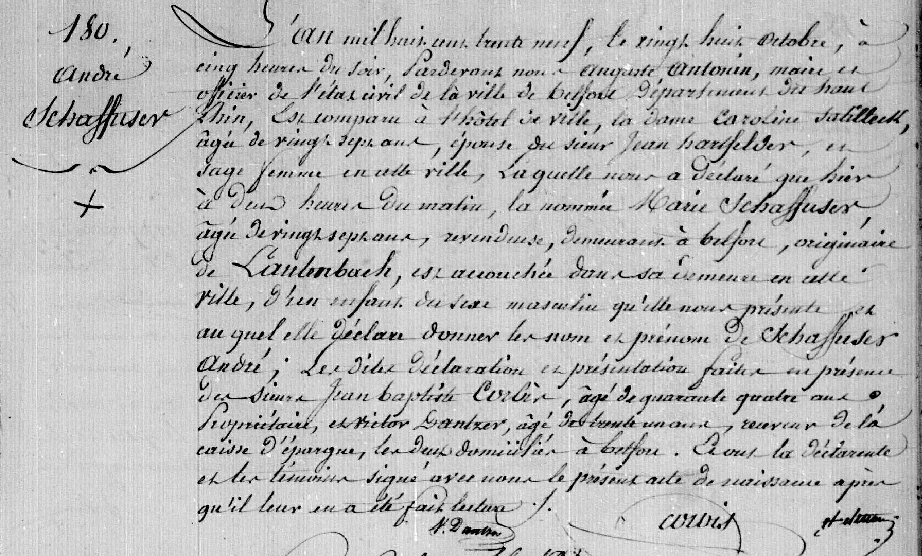 180.
André
Schaffuser
L'an mil huit cent trente neuf, le vingt huit octobre, à
cinq heures du soir, Pardevant nous Auguste Antonin, maire et
officier de l'état civil de la ville de Belfort département du haut
Rhin, Est comparu à l'hôtel de ville, la dame Caroline
âgée de vingt sept ans, épouse du sieur Jean hartfelder, et
sage femme en cette ville, Laquelle nous a déclaré que hier
à deux heures du matin, la nommée Marie Schaffuser,
âgée de vingt sept ans, revendeuse, demeurant à belfort, originaire
de Lautenbach, est accouchée dans sa demeure en cette
ville, d'un enfant du sexe masculin qu'elle nous présente et
au quel elle déclare donner les nom et prénom de Schaffuser
André; Les dites déclaration et présentation faites en présence
des sieurs Jean baptiste Corbis, âgé de quarante quatre ans
Propriétaire, et victor Dantzer, âgé de trente un ans, receveur de la
caisse d'épargne, les deux domiciliés à belfort. Et ont la déclarante
et les témoins signé avec nous le présent acte de naissance après
qu'il leur en a été fait lecture ./.
V. Dantzer
corbis